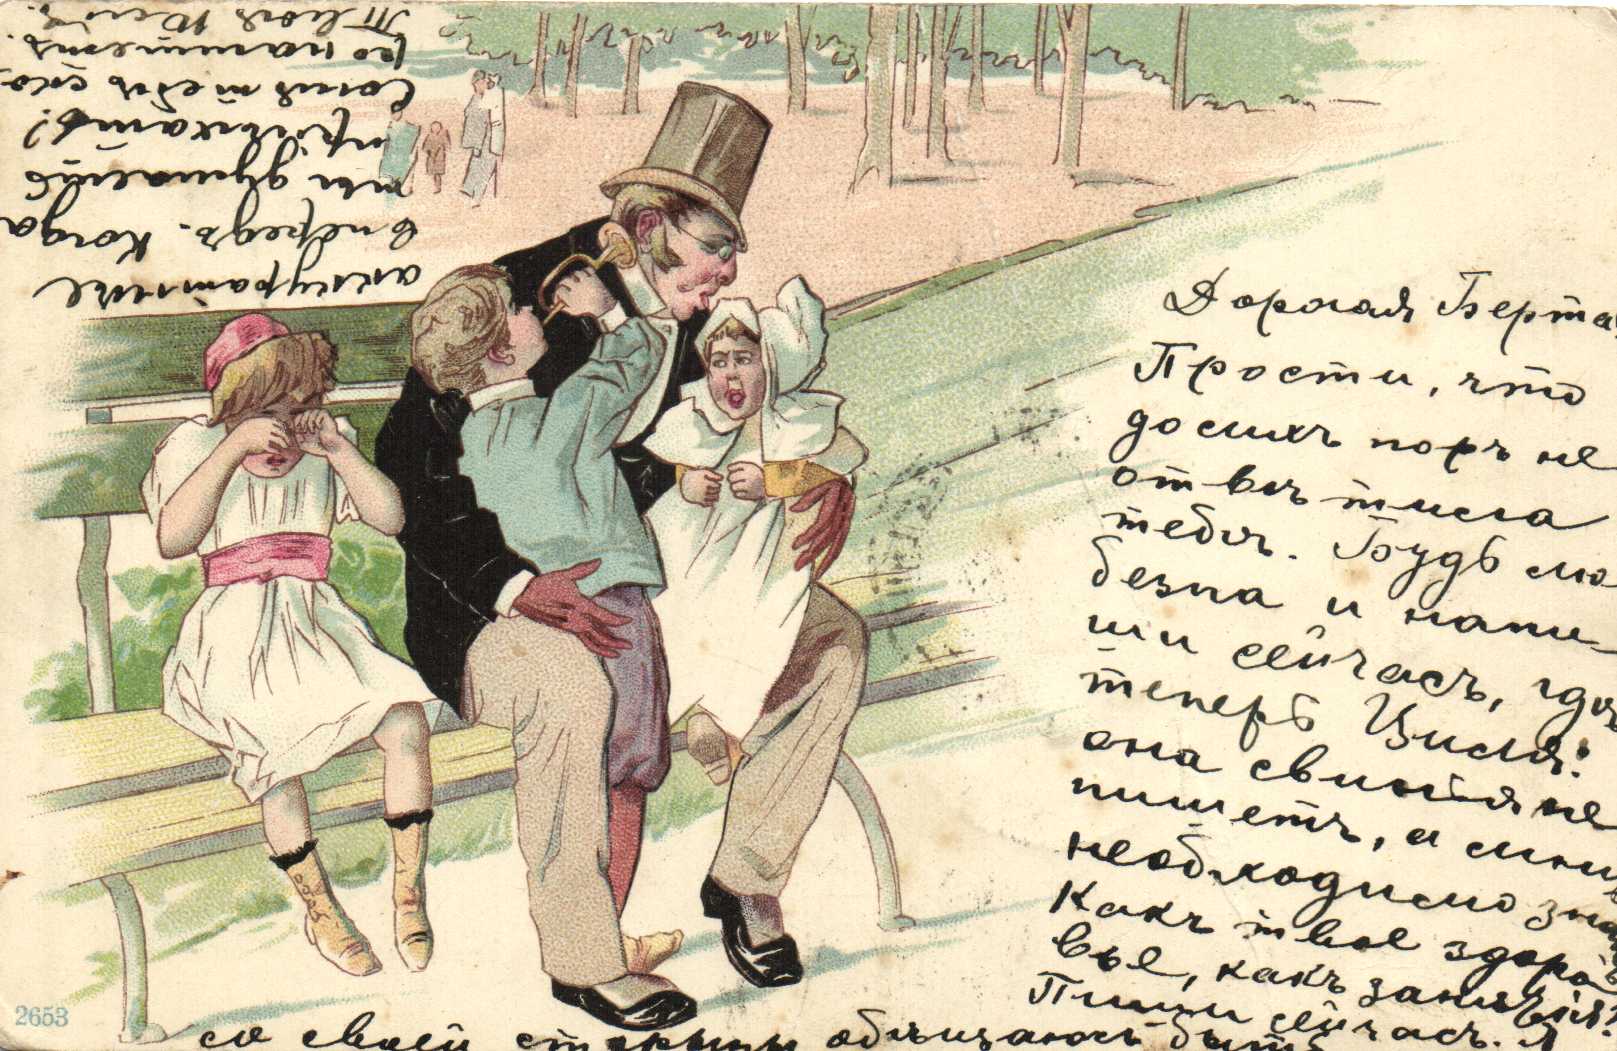 Дорогая Берта!
Прости, что
до сихъ поръ не
отвѣтила
тебѣ. Будь лю-
безна и напи-
ши сейчасъ, гдѣ
теперь Циля:
она свинья не
пишетъ, а мнѣ
необходимо зна
Какъ твое здоро-
вье, какъ занятія?
Пиши сейчасъ. Я
со своей стороны обѣщаюсь быть
аккуратнѣе
впередъ. Когда
ты думаешь
пріѣхать?
Соня тебѣ ско-
ро напишетъ.
Твоя
2653